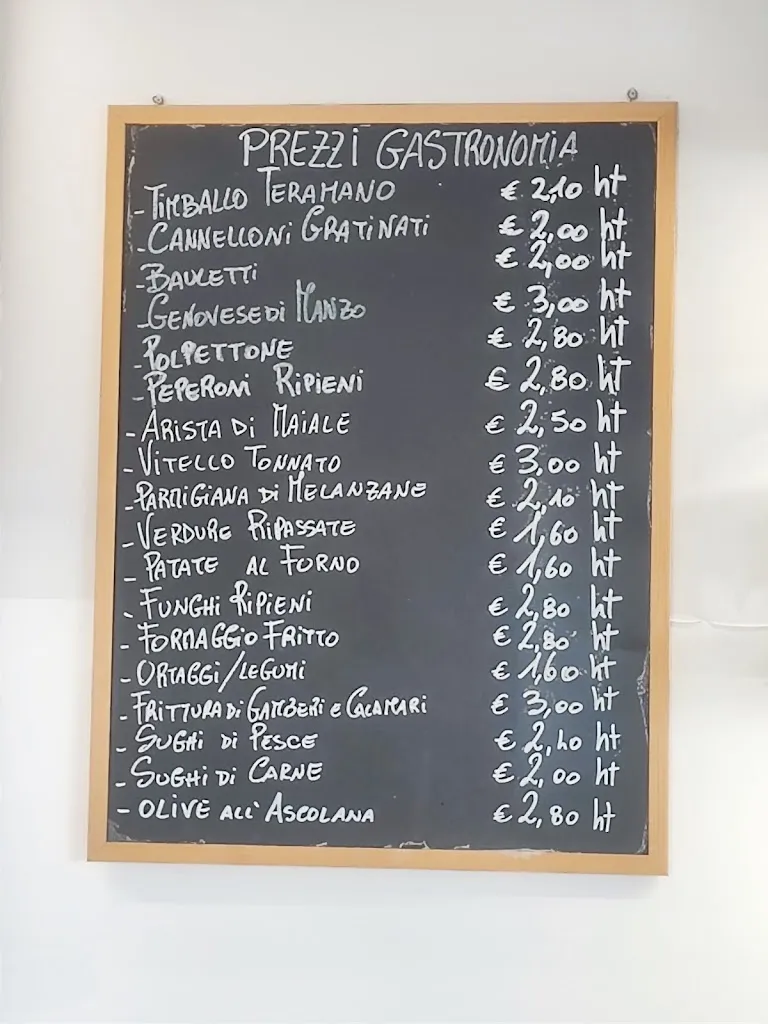 PREZZI GASTRONOMIA
- TIMBALLO TERAMANO € 2,10 ht
- CANNELLONI GRATINATI € 2,00 ht
- BAULETTI € 2,00 ht
- GENOVESE DI MANZO € 3,00 ht
- POLPETTONE € 2,80 ht
- PEPERONI RIPIENI € 2,80 ht
- ARISTA DI MAIALE € 2,50 ht
- VITELLO TONNATO € 3,00 ht
- PARMIGIANA DI MELANZANE € 2,10 ht
- VERDURE RIPASSATE € 1,60 ht
- PATATE AL FORNO € 1,60 ht
- FUNGHI RIPIENI € 2,80 ht
- FORMAGGIO FRITTO € 2,80 ht
- ORTAGGI/LEGUMI € 1,60 ht
- FRITTURA DI GAMBERI e CALAMARI € 3,00 ht
- SUGHI DI PESCE € ht
- SUGHI DI CARNE € 2,00 ht
- OLIVE ALL' ASCOLANA € 2,80 ht